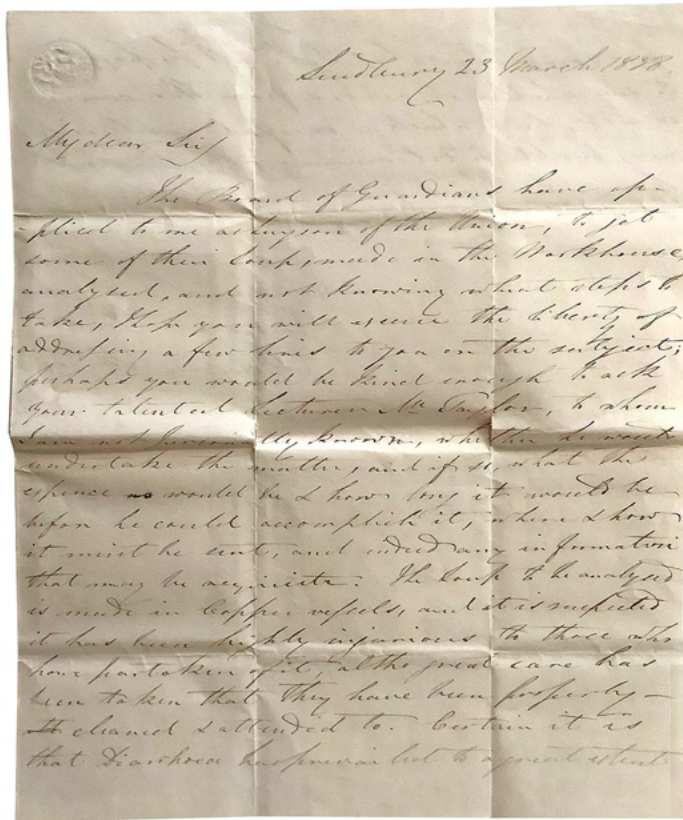 Sudbury 23 March 1838
My dear Sir/
The Board of Guardians have ap-
-plied to me as Surgeon of the Union, to get
some of their Soup, made in the Workhouse,
analysed, and not knowing what steps to
take, I hope you will excuse the liberty of
addressing a few lines to you on the subject;
perhaps you would be kind enough to ask
your talented Lecturer Mr Taylor, to whom
I am not personally known, whether he would
undertake the matter, and if so, what the
expence would be & how long it would be
before he could accomplish it, where & how
it must be sent, and indeed any information
that may be requisite. The Soup to be analysed
is made in Copper vessels, and it is suspected
it has been highly injurious to those who
have partaken of it altho great care has
been taken that they have been properly –
cleaned & attended to. Certain it is
that Diarrhoea has prevailed to a great extent